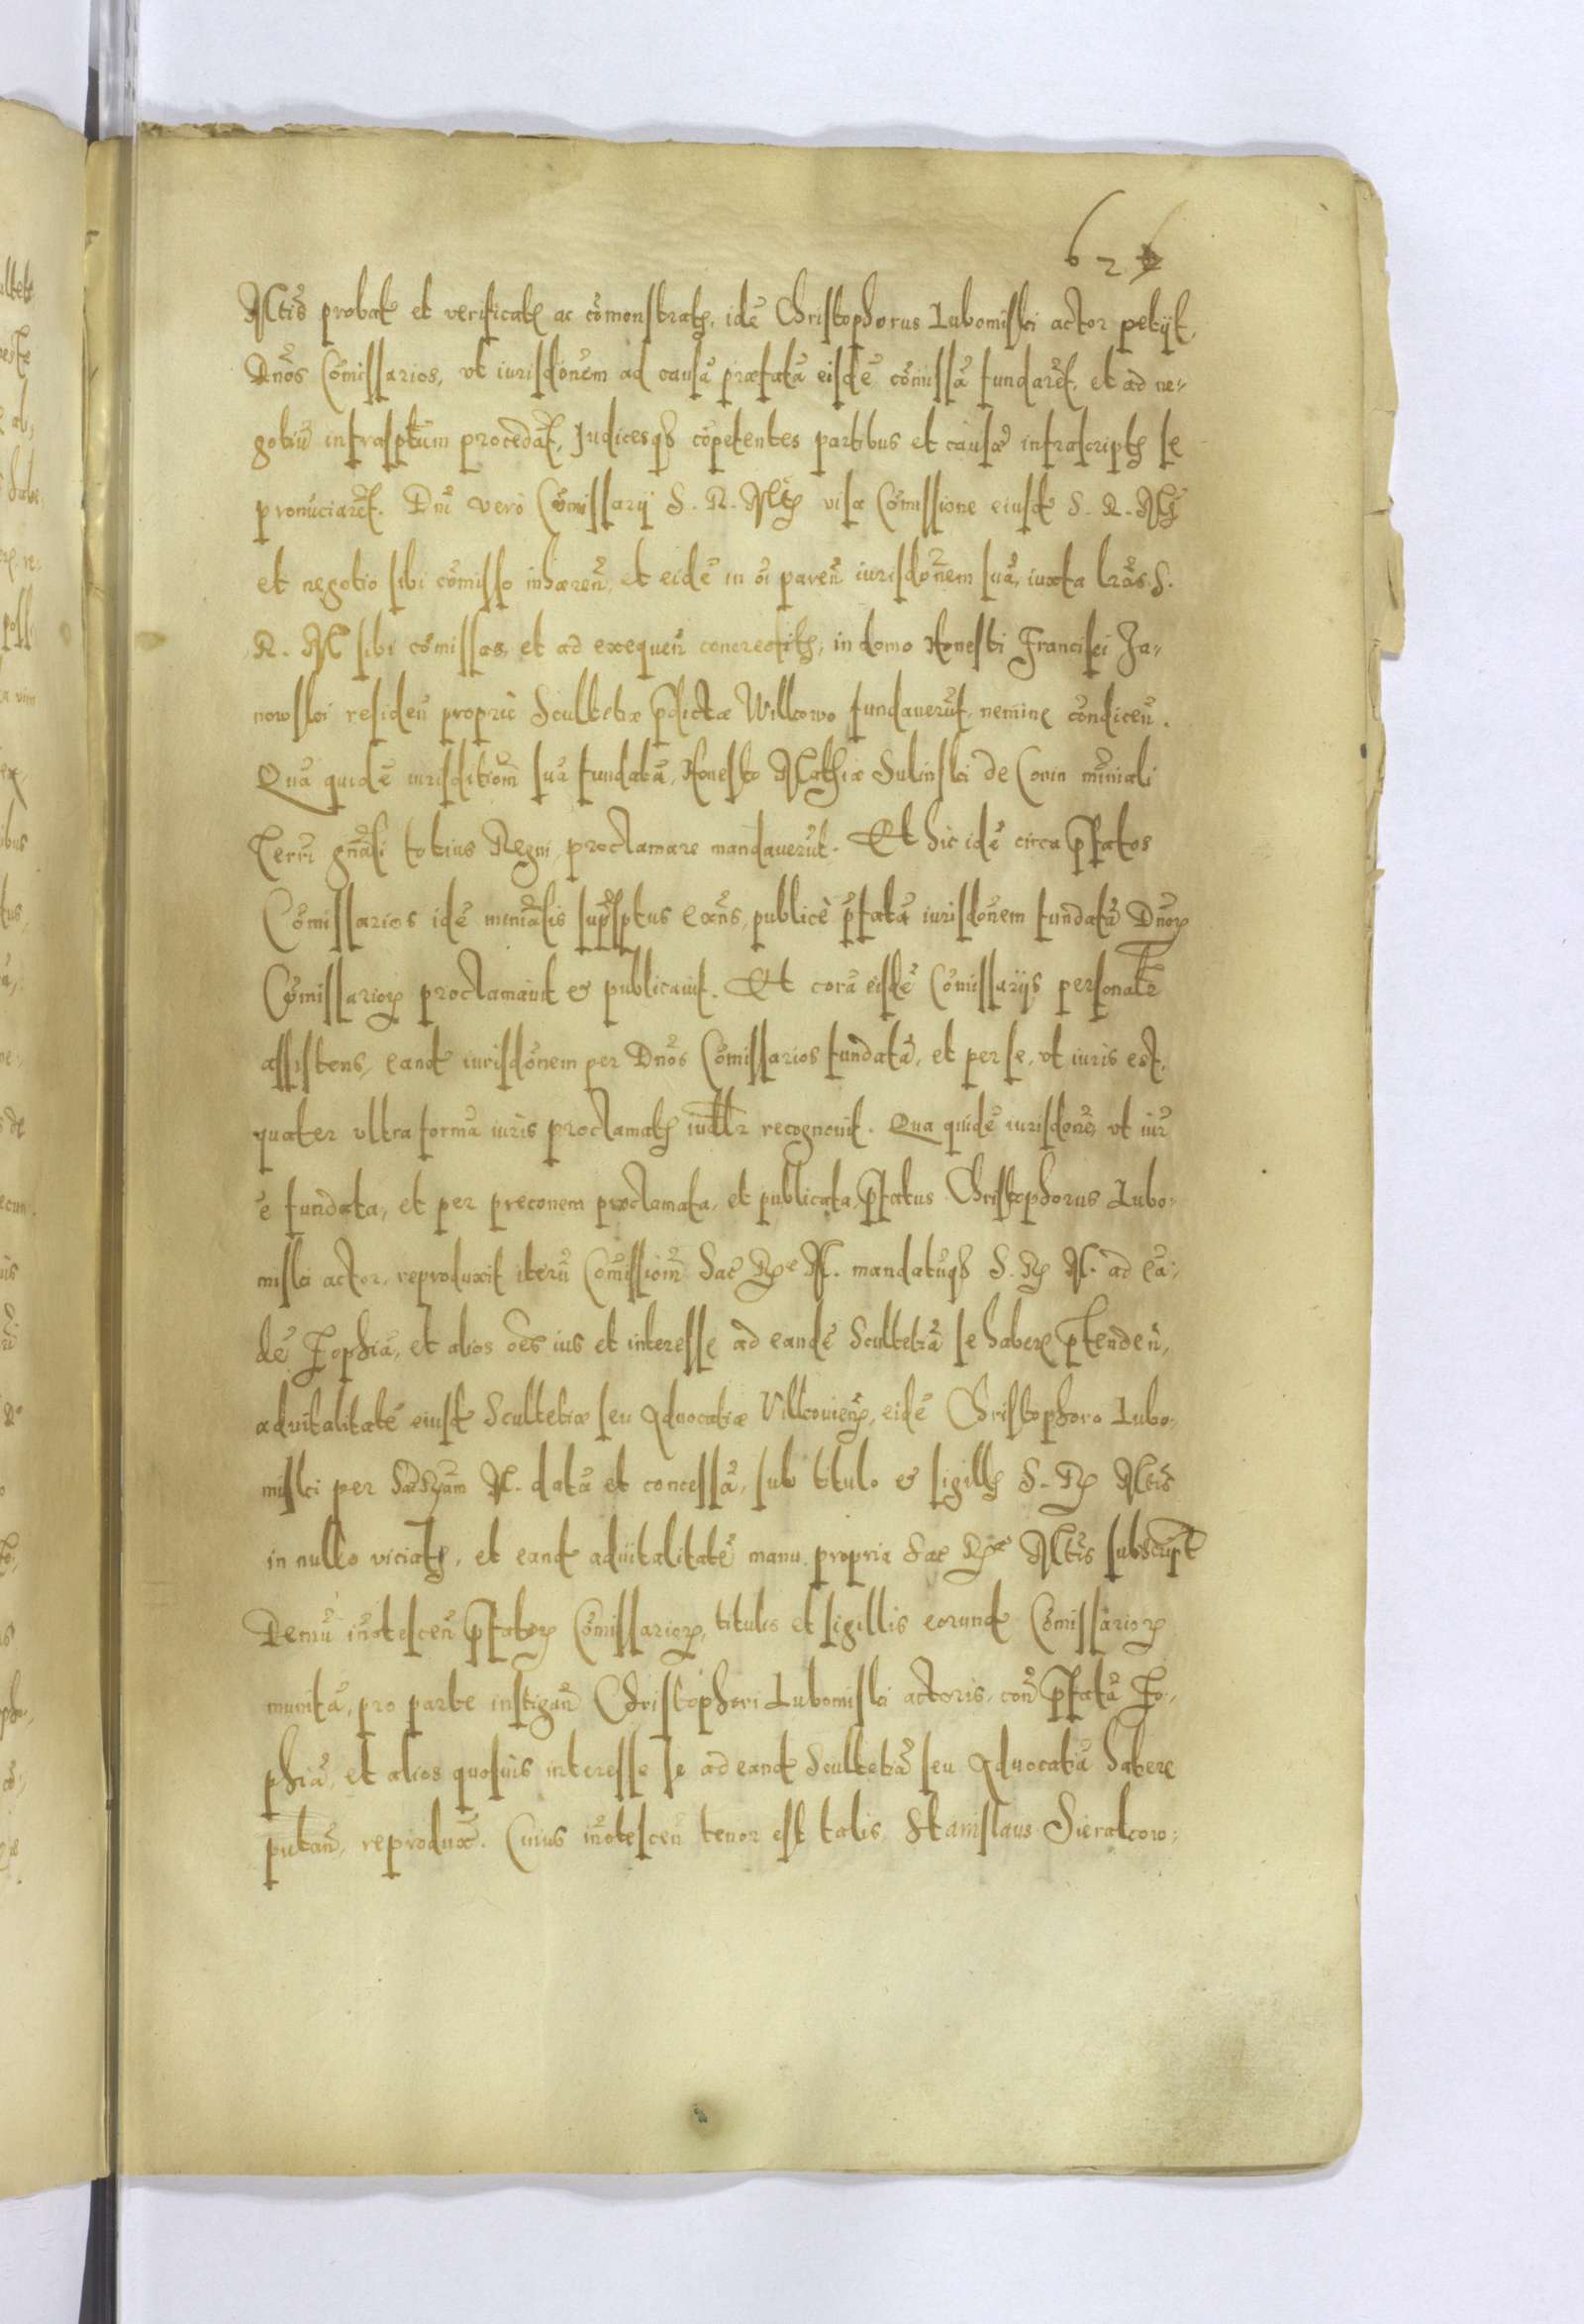 62
Mtis̃ probat et verificatę ac com̃onstratę, idẽ Christophorus Lubomisky actor petijt,
Dños Com̃issarios, vt iurisdõnem ad causã præfatã eisdẽ com̃issã fundarēt, et ad ne-
gotiũ infrasptum procedāt, Iudicesqȝ cõpetentes partibus et causæ infrascriptę se
pronũciarēt. Dñi verò Com̃issarij S. R. Mtę visa Com̃issione eiusd S. R. Mtę
et negotio sibi com̃isso inhæreñ, et eidẽ in õi pareñ iurisdõnem suã, iuxta lrãs S.
R. M sibi com̃issas, et ad exequeñ, in domo Honesti Francisci Ja-
nowski resideñ propriè Scultetiæ pdictæ Wilkowo fundauerũt, nemine cõndiceñ.
Quã quidẽ iurisditionẽ suã fundatã, Honesto Mathiæ Sulinski de Conin miñiali
Terrr gñali totius Regni, proclamare mandauerũt. Et hic idẽ circa pfatos
Com̃issarios idẽ miñialis supsptus exñs, publicè pfatã iurisdõnem fundatã Dñorꝝ
Com̃issariorꝝ proclamauit & publicauit. Et corã eisdẽ Com̃issarijs personalr
assistens, eand iurisdõnem per Dños Com̃issarios fundatã, et per se, vt iuris est,
quater vltra formã iuris proclamatę iudlr recognouit. Qua quidẽ iurisdõne, vt iur
ẽ fundata, et per preconem proclamata, et publicata, pfatus Christophorus Lubo-
miski actor, reproduxit iterũ Com̃issionẽ Sac Rꝝ M. mandatũqȝ S. Rꝝ M. ad eã-
dẽ Zophiã, et alios oẽs ius et interesse ad eandẽ Scultetiã se haberę ptendeñ,
aduitalitatẽ eiusd Scultetiæ seu Aduocatiæ Vilkouieñ, eidẽ Christophoro Lubo-
miski per Sac Rꝝam M. datã et concessã, sub titulo & sigillę S. Rꝝ Mtis̃
in nullo viciatę, et eand aduitalitatẽ manu propria Sac Rꝝæ Mtis̃ subscript
Demũ iñotesceñ pfatorꝝ Com̃issariorꝝ, titulis et sigillis eorund Com̃issariorꝝ
munitã, pro parte instigañ Christophori Lubomiski actoris, coñ pfatã Zo-
phiã, et alios quosuis interesse se ad eand Scultetiã seu Aduocatiã habere
putañ, reprodux̃. Cuius iñotesceñ tenor est talis Stanislaus Sierakow-